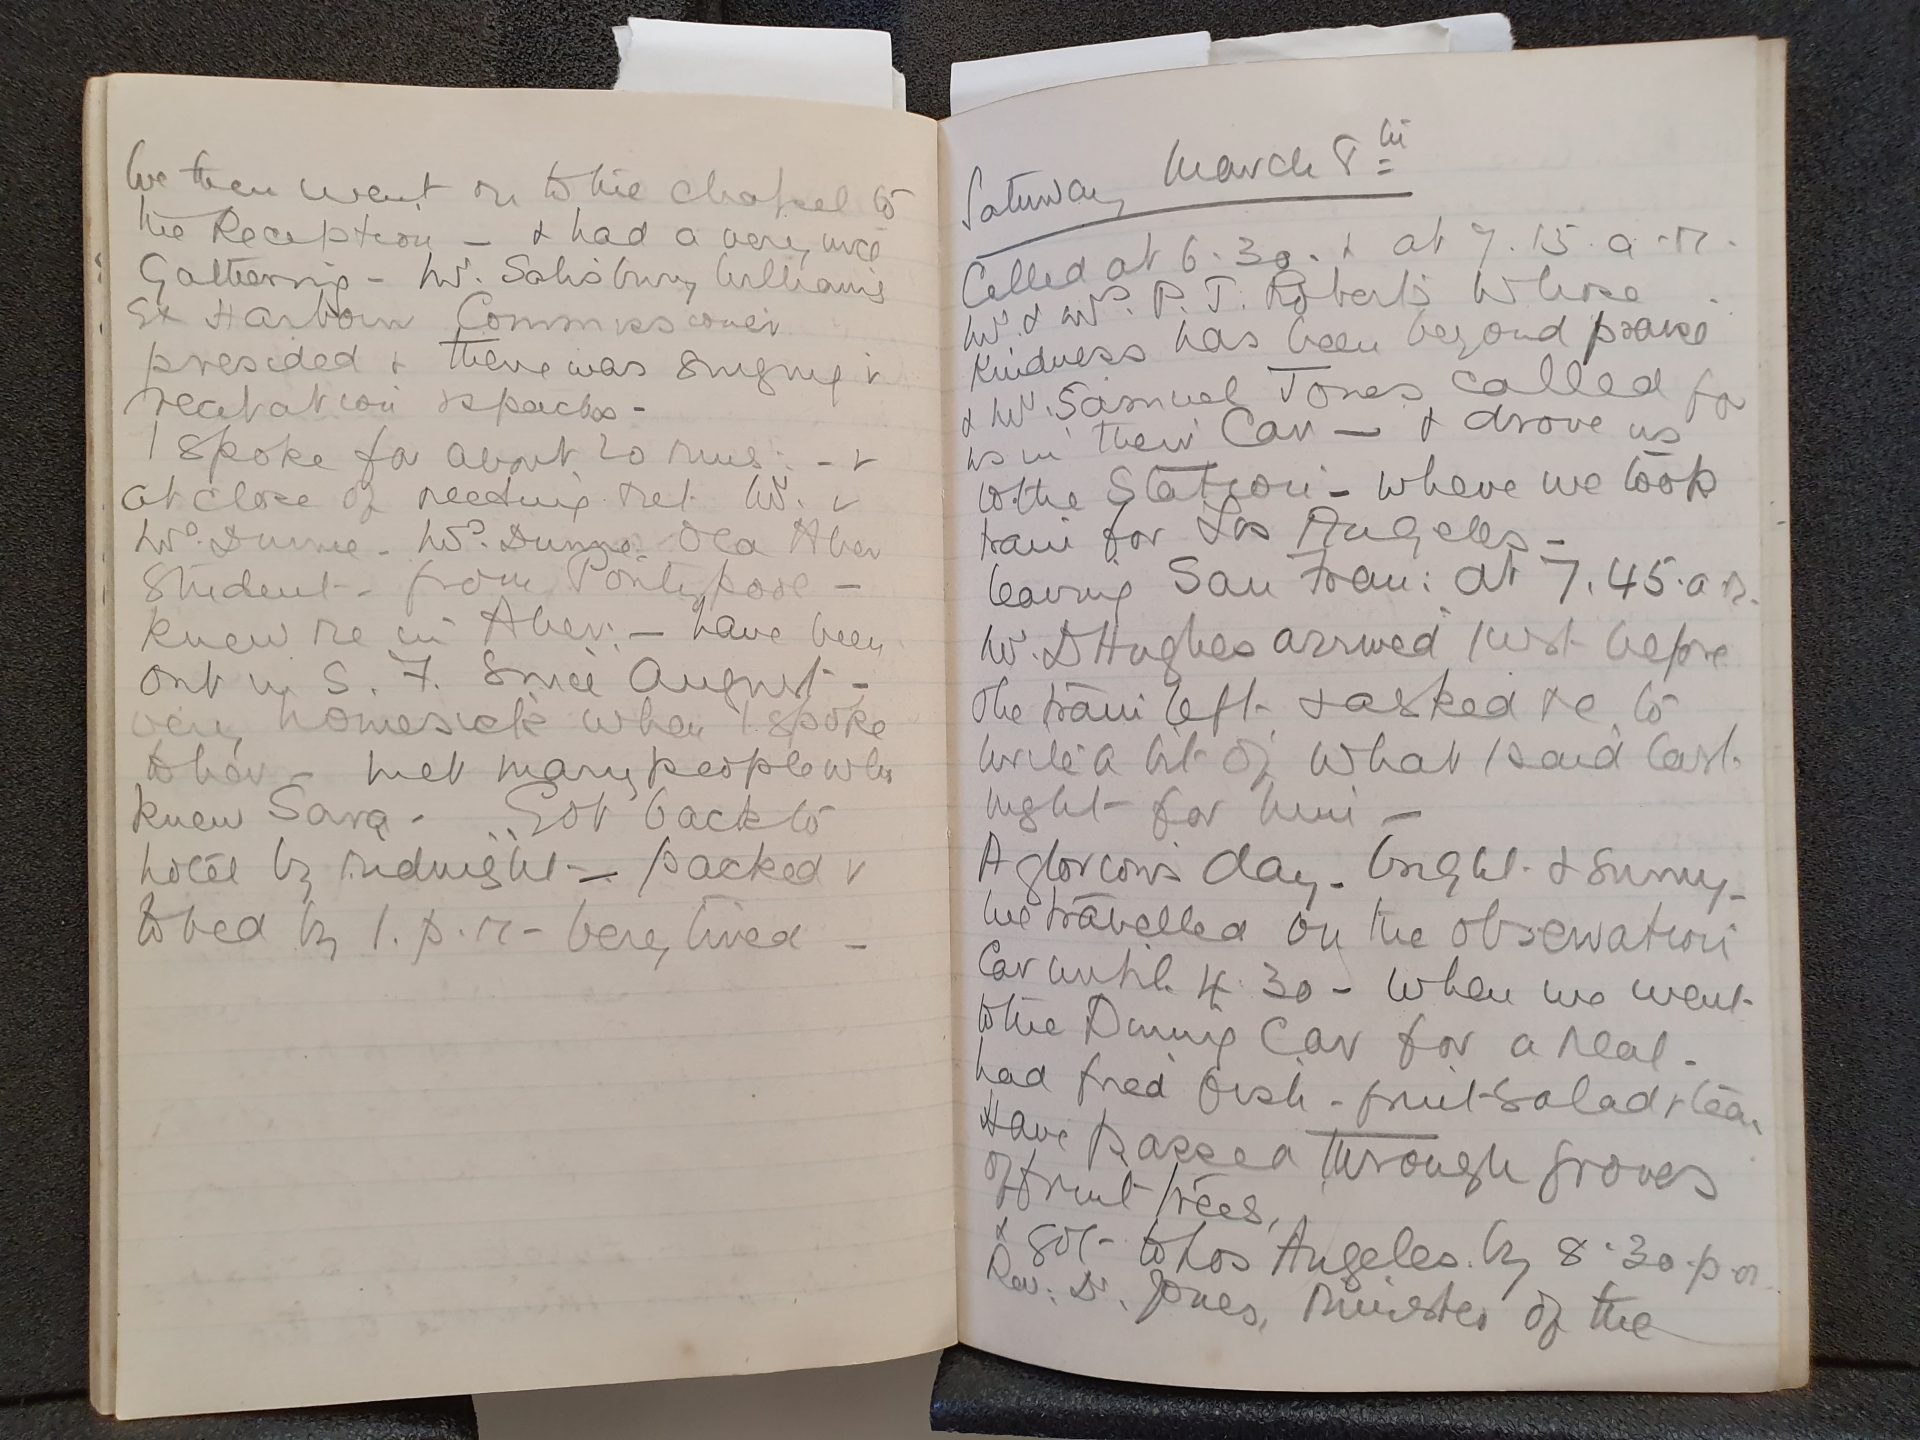 We then went on to the chapel to
the Reception - & had a very nice
Gathering - Mr. Salisbury Williams
Ex Harbour Commissioner
presided & there was singing &
recitation & speeches -
I spoke for about 20 mins: - &
at close of meeting met Mr. &
Mrs. Dunne - Mrs. Dunne. Old Aber
Student - from Pontypool -
knew me in Aber: - have been
out in S. F. since August -
very homesick when I spoke
to her - met many people who
knew Sara - Got back to
hotel by midnight - packed &
to bed by 1. p.m - very tired -
Saturday March 8th
Called at 6.30. & at 7.15. a.m.
Mr. & Mrs. P. T. Roberts whose
kindness has been beyond praise
& Mr. Samuel Jones called for
us in their Car - & drove us
to the Station - where we took
train for Los Angeles -
leaving San Fran: at 7.45. a m.
Mr. D Hughes arrived just before
the train left & asked me to
write a bit of what I said last
night for him -
A glorious day - bright & sunny -
We travelled on the observation
Car until 4.30 - when we went
to the Dining Car for a meal -
had fried fish - fruit salad & tea.
Have passed through groves
of fruit trees,
& got to Los Angeles by 8.30. p m
Rev. Dr. Jones, Minister of the